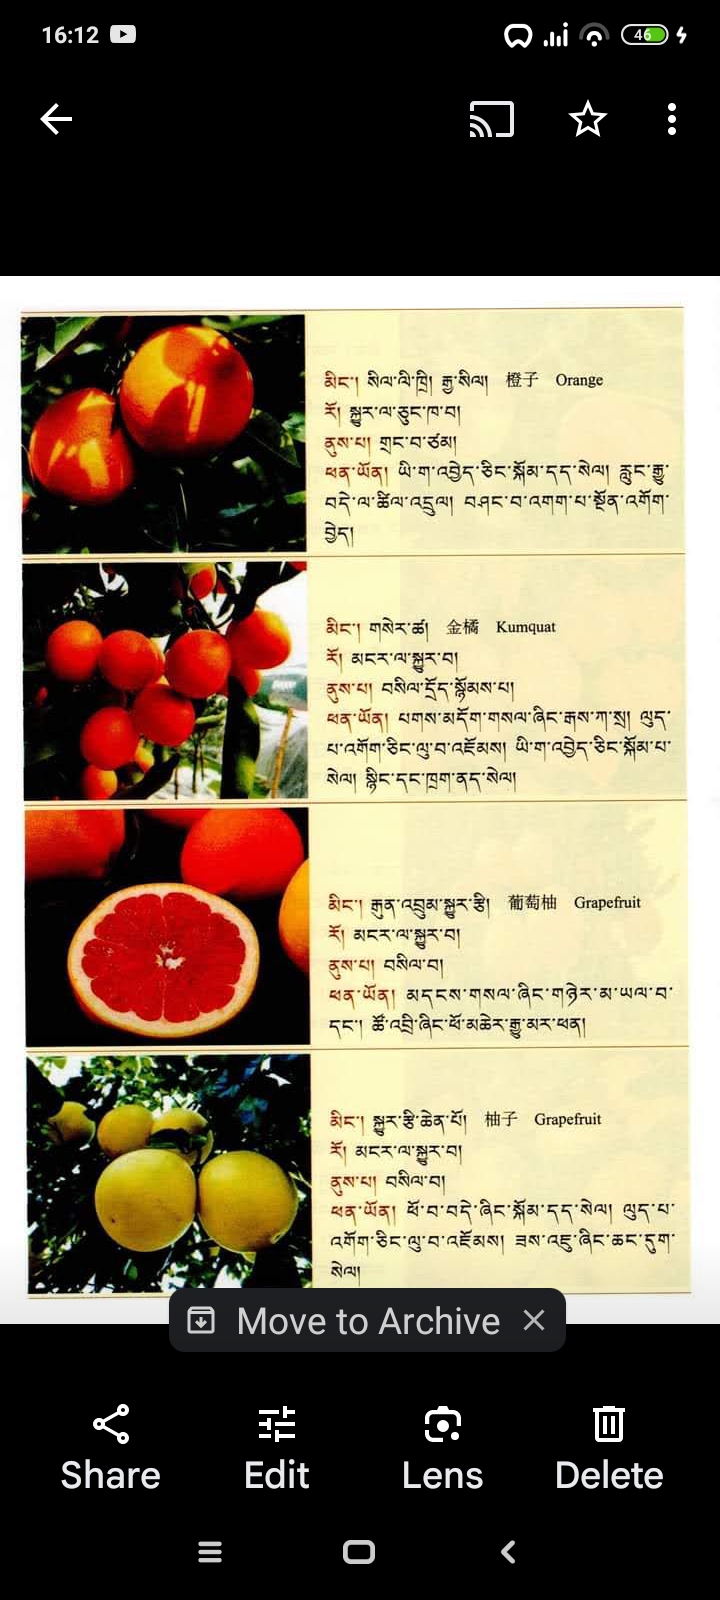 16:12
46
མིང་། སིལ་ལི་ཁྲི། རྒྱ་སིལ། 橙子 Orange
རོ། སྐྱུར་ལ་ཅུང་ཁ་བ།
ནུས་པ། གྲང་བ་ཙམ།
ཕན་ཡོན། ཡི་ག་འབྱེད་ཅིང་སྐོམ་དད་སེལ། རླུང་རྒྱུ་
བདེ་ལ་ཚིལ་འདྲུལ། བཤང་བ་འགག་པ་སྔོན་འགོག་
བྱེད།
མིང་། གསེར་ཚ། 金橘 Kumquat
རོ། མངར་ལ་སྐྱུར་བ།
ནུས་པ། བསིལ་དྲོད་སྙོམས་པ།
ཕན་ཡོན། པགས་མདོག་གསལ་ཞིང་རྒས་ཀ་སྲ། ལུད་
པ་འགོག་ཅིང་ལུ་བ་འཇོམས། ཡི་ག་འབྱེད་ཅིང་སྐོམ་པ་
སེལ། སྙིང་དང་ཁྲག་ནད་སེལ།
མིང་། རྒུན་འབྲུམ་སྐྱུར་རྩི། 葡萄柚 Grapefruit
རོ། མངར་ལ་སྐྱུར་བ།
ནུས་པ། བསིལ་བ།
ཕན་ཡོན། མདངས་གསལ་ཞིང་གཉེར་མ་ཡལ་བ་
དང་། ཚོ་འབྲི་ཞིང་ཕོ་མཆེར་རྒྱུ་མར་ཕན།
མིང་། སྐྱུར་རྩི་ཆེན་པོ། 柚子 Grapefruit
རོ། མངར་ལ་སྐྱུར་བ།
ནུས་པ། བསིལ་བ།
ཕན་ཡོན། ཕོ་བ་བདེ་ཞིང་སྐོམ་དད་སེལ། ལུད་པ་
འགོག་ཅིང་ལུ་བ་འཇོམས། ཟས་འཇུ་ཞིང་ཆང་དུག་
སེལ།
Move to Archive
Share Edit Lens Delete